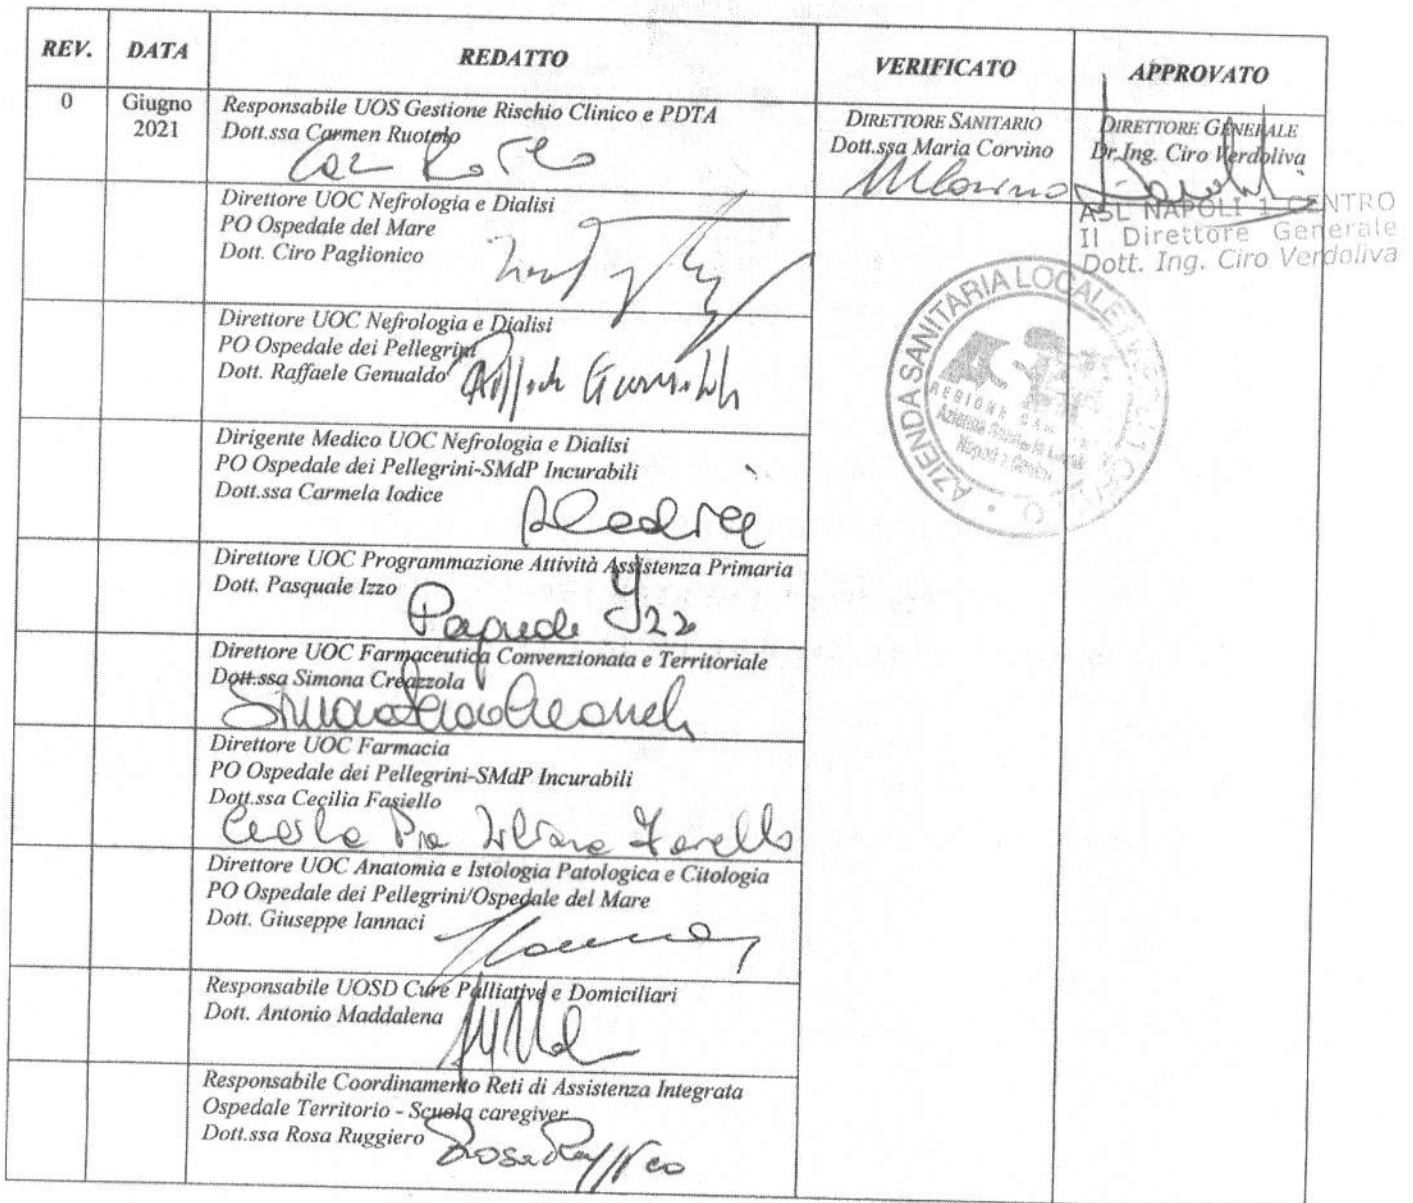 REV. DATA REDATTO VERIFICATO APPROVATO
0 Giugno 2021
Responsabile UOS Gestione Rischio Clinico e PDTA
Dott.ssa Carmen Ruotolo
DIRETTORE SANITARIO
Dott.ssa Maria Corvino
DIRETTORE GENERALE
Dr.Ing. Ciro Verdoliva
ASL NAPOLI 1 CENTRO
Il Direttore Generale
Dott. Ing. Ciro Verdoliva
AZIENDA SANITARIA LOCALE
REGIONE
Direttore UOC Nefrologia e Dialisi
PO Ospedale del Mare
Dott. Ciro Paglionico
Direttore UOC Nefrologia e Dialisi
PO Ospedale dei Pellegrini
Dott. Raffaele Genualdo
Dirigente Medico UOC Nefrologia e Dialisi
PO Ospedale dei Pellegrini-SMdP Incurabili
Dott.ssa Carmela Iodice
Direttore UOC Programmazione Attività Assistenza Primaria
Dott. Pasquale Izzo
Direttore UOC Farmaceutica Convenzionata e Territoriale
Dott.ssa Simona Creazzola
Direttore UOC Farmacia
PO Ospedale dei Pellegrini-SMdP Incurabili
Dott.ssa Cecilia Fasiello
Direttore UOC Anatomia e Istologia Patologica e Citologia
PO Ospedale dei Pellegrini/Ospedale del Mare
Dott. Giuseppe Iannaci
Responsabile UOSD Cure Palliative e Domiciliari
Dott. Antonio Maddalena
Responsabile Coordinamento Reti di Assistenza Integrata
Ospedale Territorio - Scuola caregiver
Dott.ssa Rosa Ruggiero